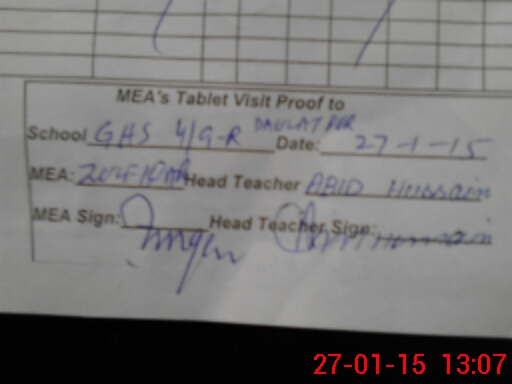 MEA's Tablet Visit Proof to
School GHS 4/9-R DAULAT PUR Date: 27-1-15
MEA: Head Teacher ABID Hussain
MEA Sign: Head Teacher Sign:
27-01-15 13:07